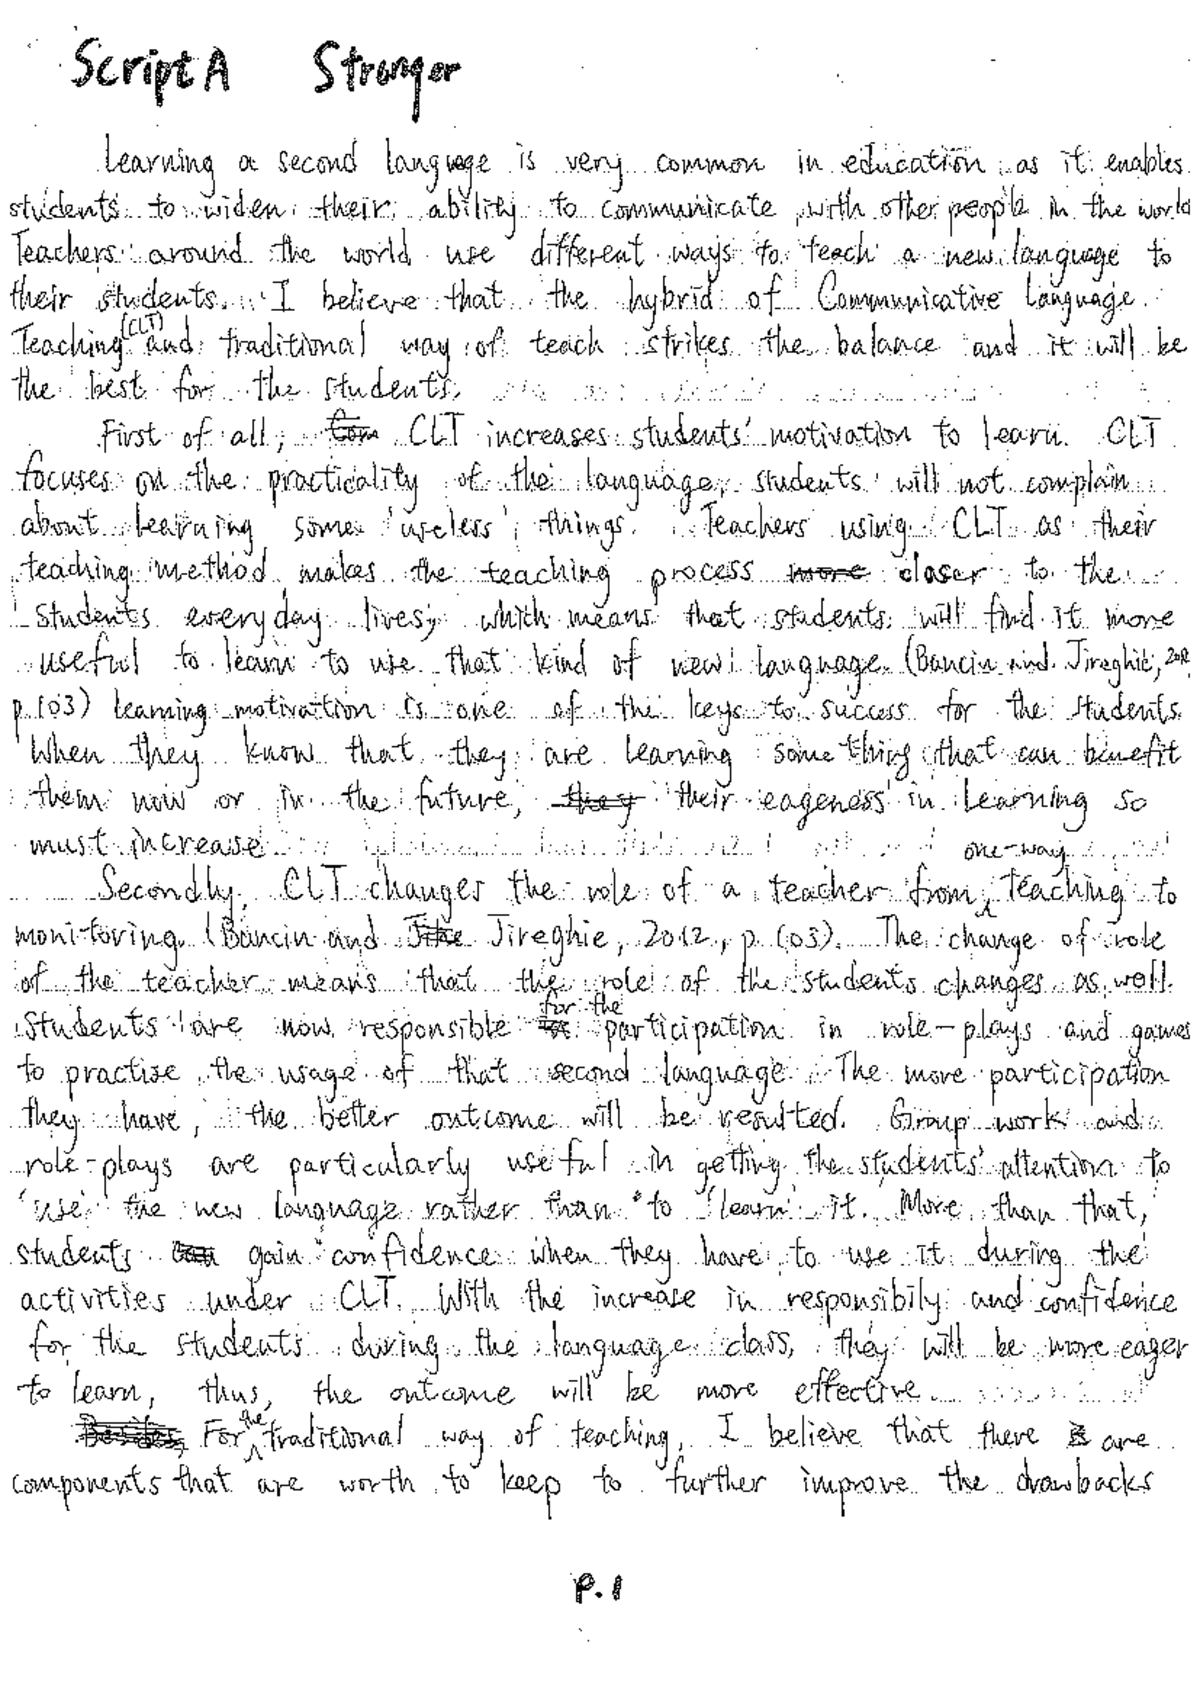 Script A Stronger
Learning a second language is very common in education as it enables
students to widen their ability to communicate with other people in the world
Teachers around the world use different ways to teach a new language to
their students. I believe that the hybrid of Communicative Language
Teaching (CLT) and traditional way of teach strikes the balance and it will be
the best for the students.
First of all, CLT increases students' motivation to learn. CLT
focuses on the practicality of the language, students will not complain
about learning some 'useless' things. Teachers using CLT as their
teaching method makes the teaching process closer to the
students everyday lives, which means that students will find it more
useful to learn to use that kind of new language. (Bancin and Jireghie, 2012
p.103) learning motivation is one of the keys to success for the students.
When they know that they are learning something that can benefit
them now or in the future, their eageness in learning so
must increase
Secondly, CLT changes the role of a teacher from one-way teaching to
monitoring. (Bancin and Jireghie, 2012, p.103). The change of role
of the teacher means that the role of the students changes as well.
Students are now responsible for the participation in role-plays and games
to practise the usage of that second language. The more participation
they have, the better outcome will be resulted. Group work and
role-plays are particularly useful in getting the students' attention to
'use' the new language rather than to 'learn' it. More than that,
students gain confidence when they have to use it during the
activities under CLT. With the increase in responsibily and confidence
for the students during the language class, they will be more eager
to learn, thus, the outcome will be more effective.
For the traditional way of teaching, I believe that there are
components that are worth to keep to further improve the drawbacks
P.1